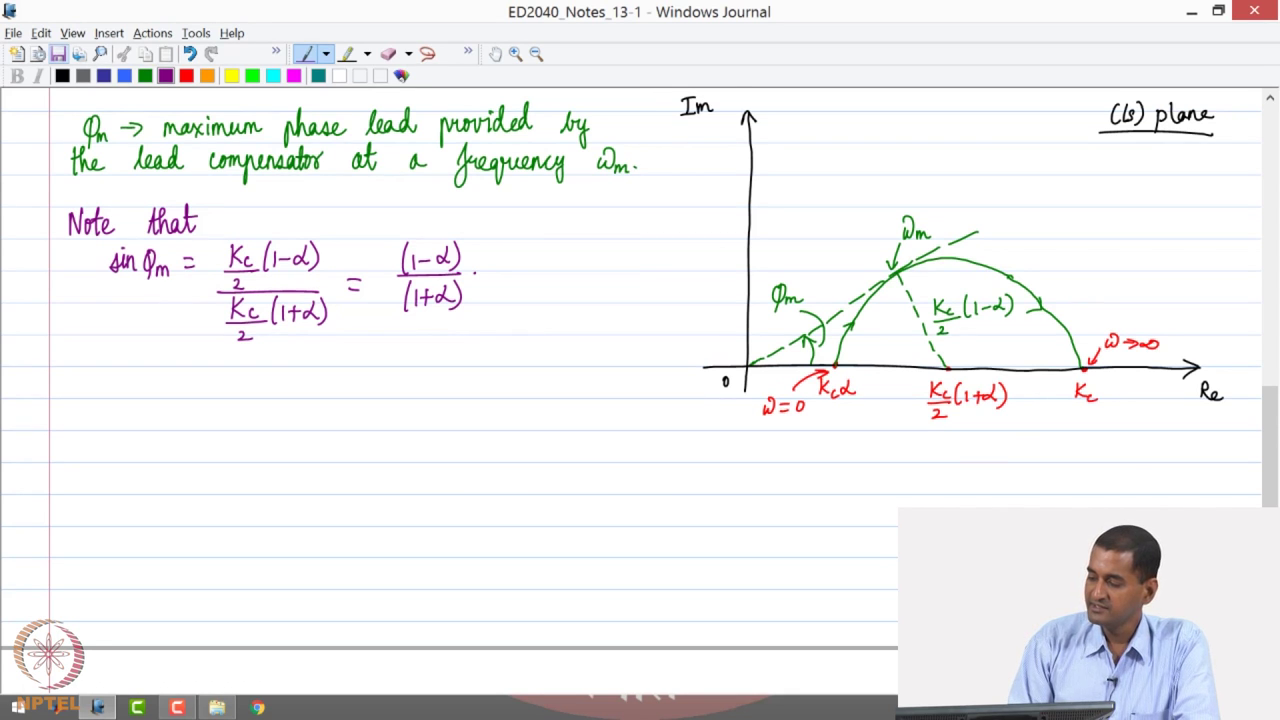 ED2040_Notes_13-1 - Windows Journal
File Edit View Insert Actions Tools Help
φm → maximum phase lead provided by
the lead compensator at a frequency ωm.
Note that
sin φm = Kc/2 (1-α) / Kc/2 (1+α) = (1-α) / (1+α) .
Im
C(s) plane
ωm
φm
Kc/2 (1-α)
ω→∞
0
ω=0
Kcα
Kc/2 (1+α)
Kc
Re
NPTEL